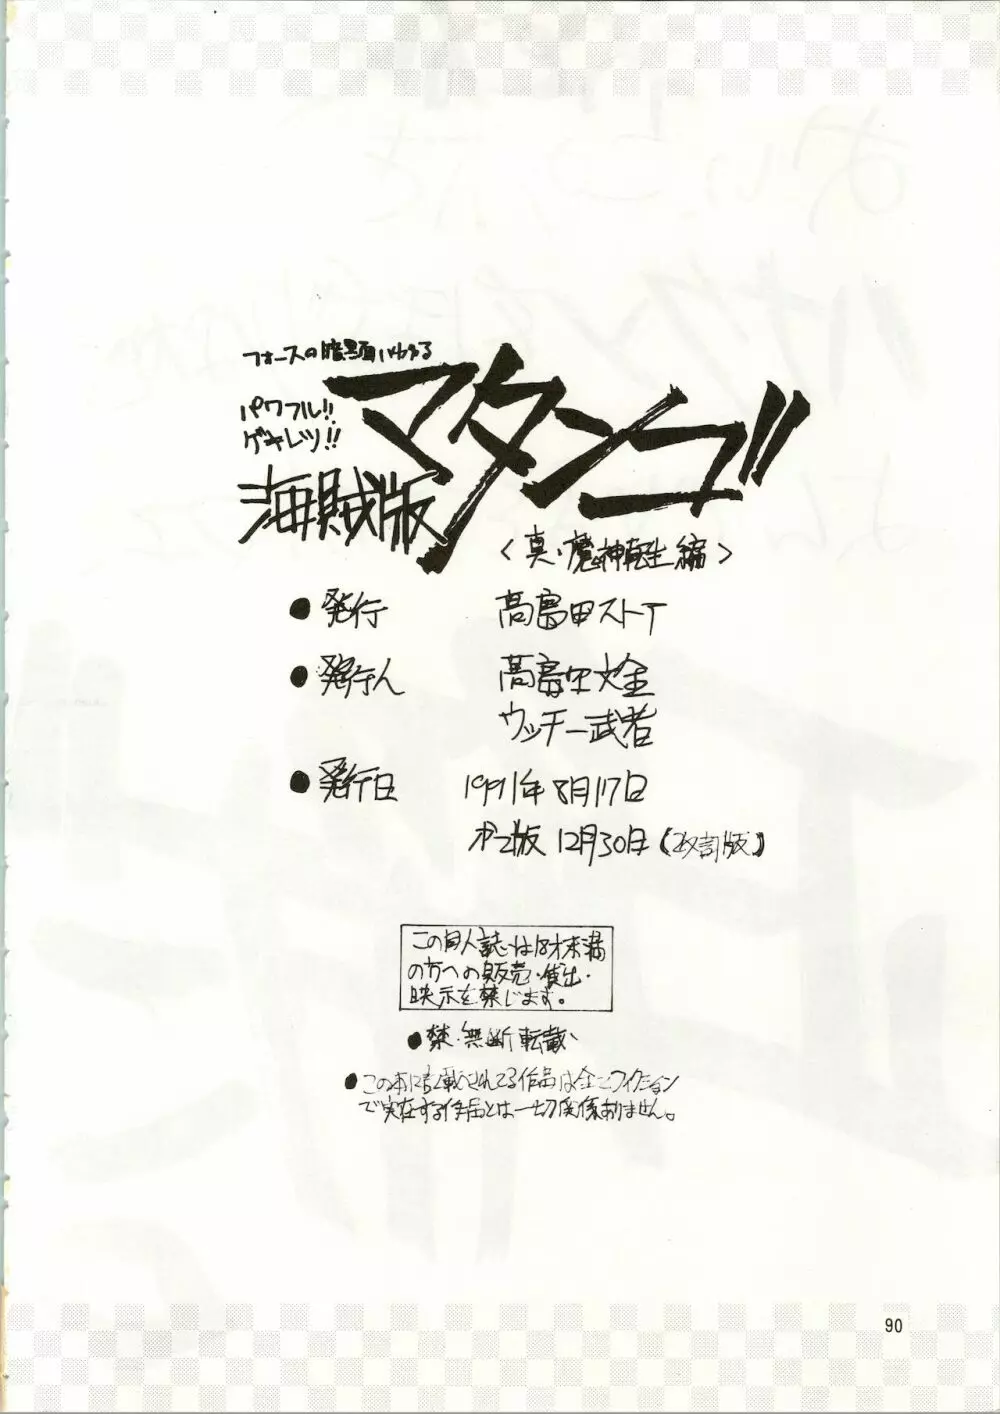 フォースの暗黒面いわゆる
パワフル!!
ゲキレツ!!
マタンゴ!!
海賊版
<真・魔神転生編>
●発行 高島田ストア
●発行人 高島田文金
ウッチー武者
●発行日 1991年8月17日
ボコ版 12月30日(改訂版)
この同人誌は18才未満
の方への販売・貸出・
映示を禁じます。
●禁・無断転載
●この本に記載されてる作品は全てフィクション
で実在する作品とは一切関係ありません。
90